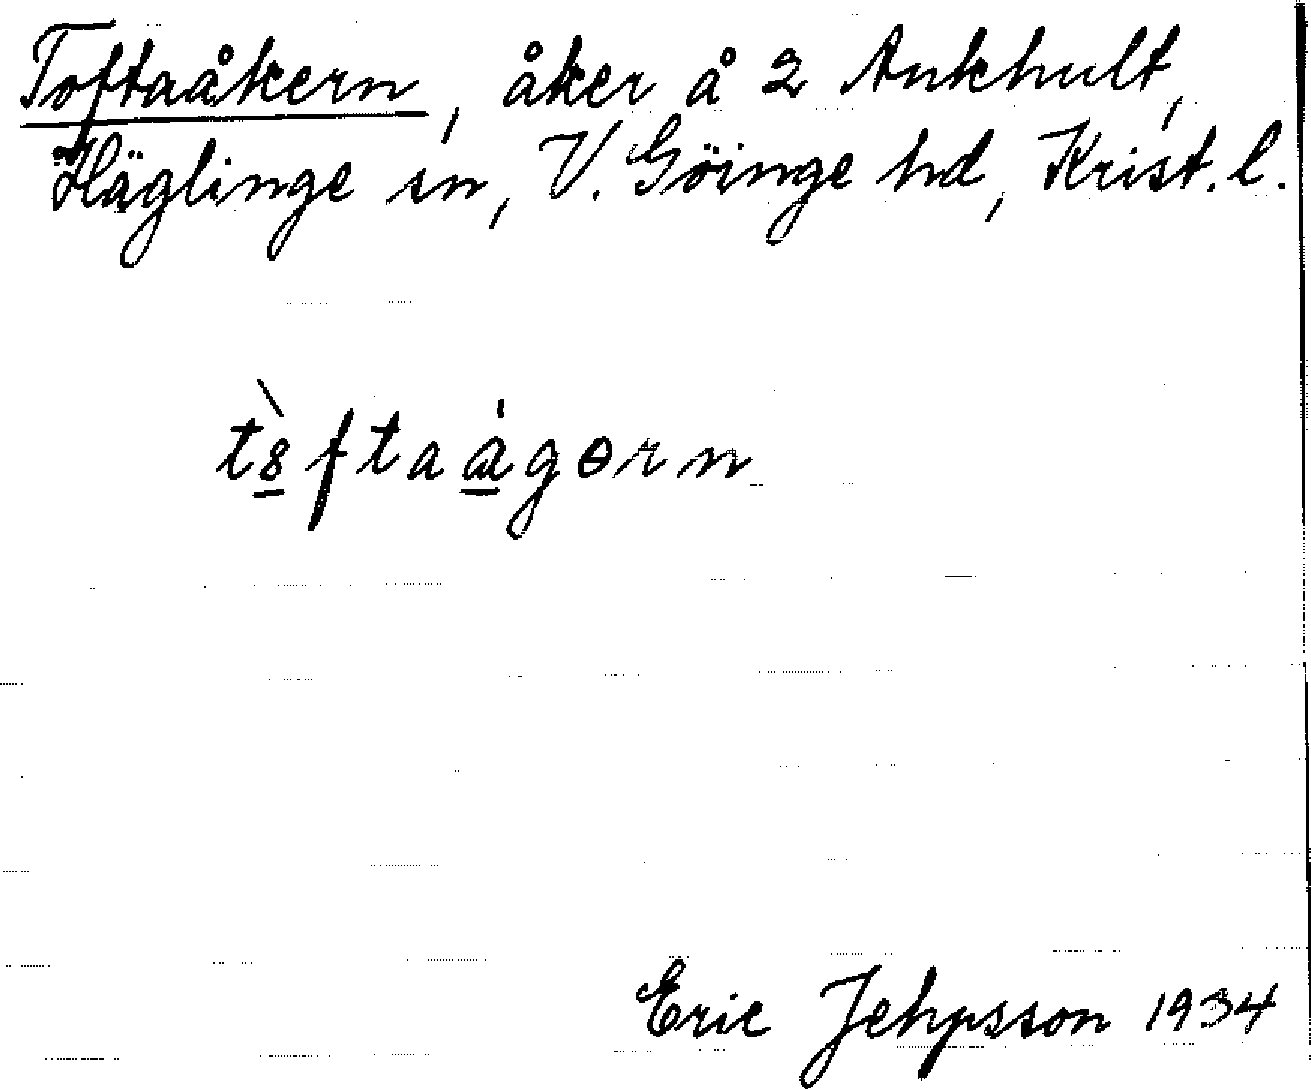 Toftaåkern, åker å 2 Ankhult,
Häglinge sn, V. Göinge hd, Krist. l.
Eric Jehpsson 1934